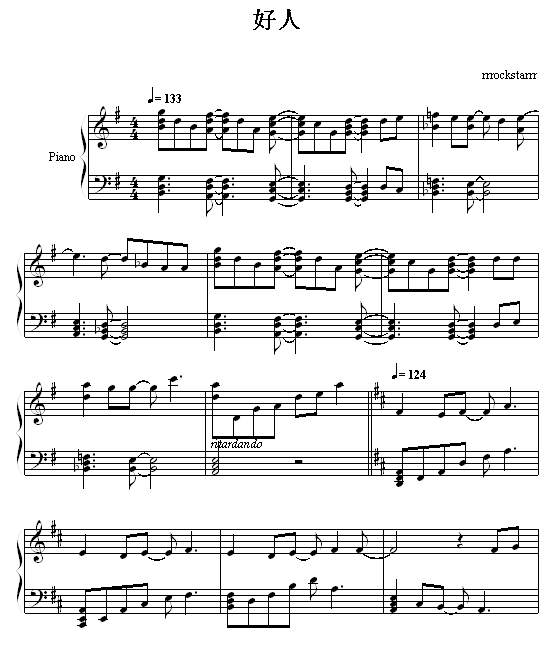 好人
rrockstarrr
♩= 133
4
4
Piano
4
4
ritardando
♩= 124